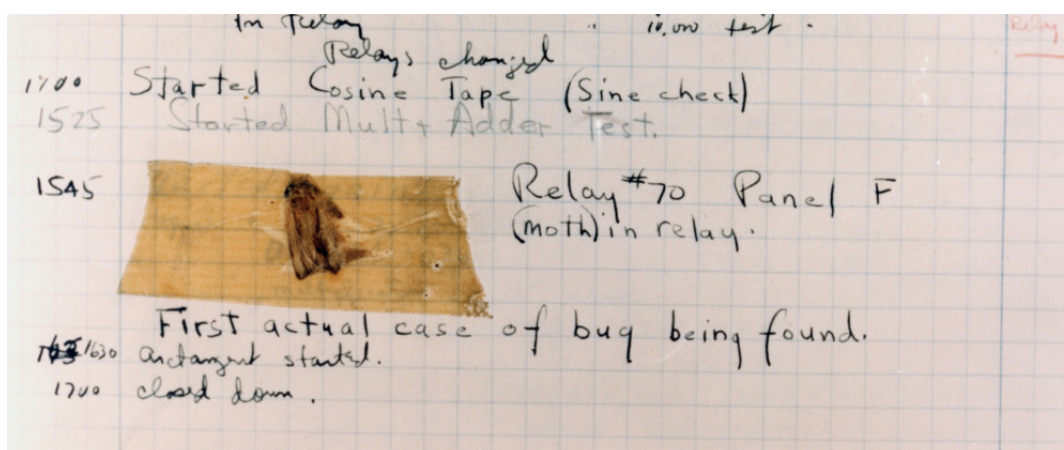 In Relay " 10,000 test .
Relay
Relays changed
1700 Started Cosine Tape (Sine check)
1525 Started Mult + Adder Test.
1545 Relay #70 Panel F
(moth) in relay.
First actual case of bug being found.
1630 arctangent started.
1700 closed down.